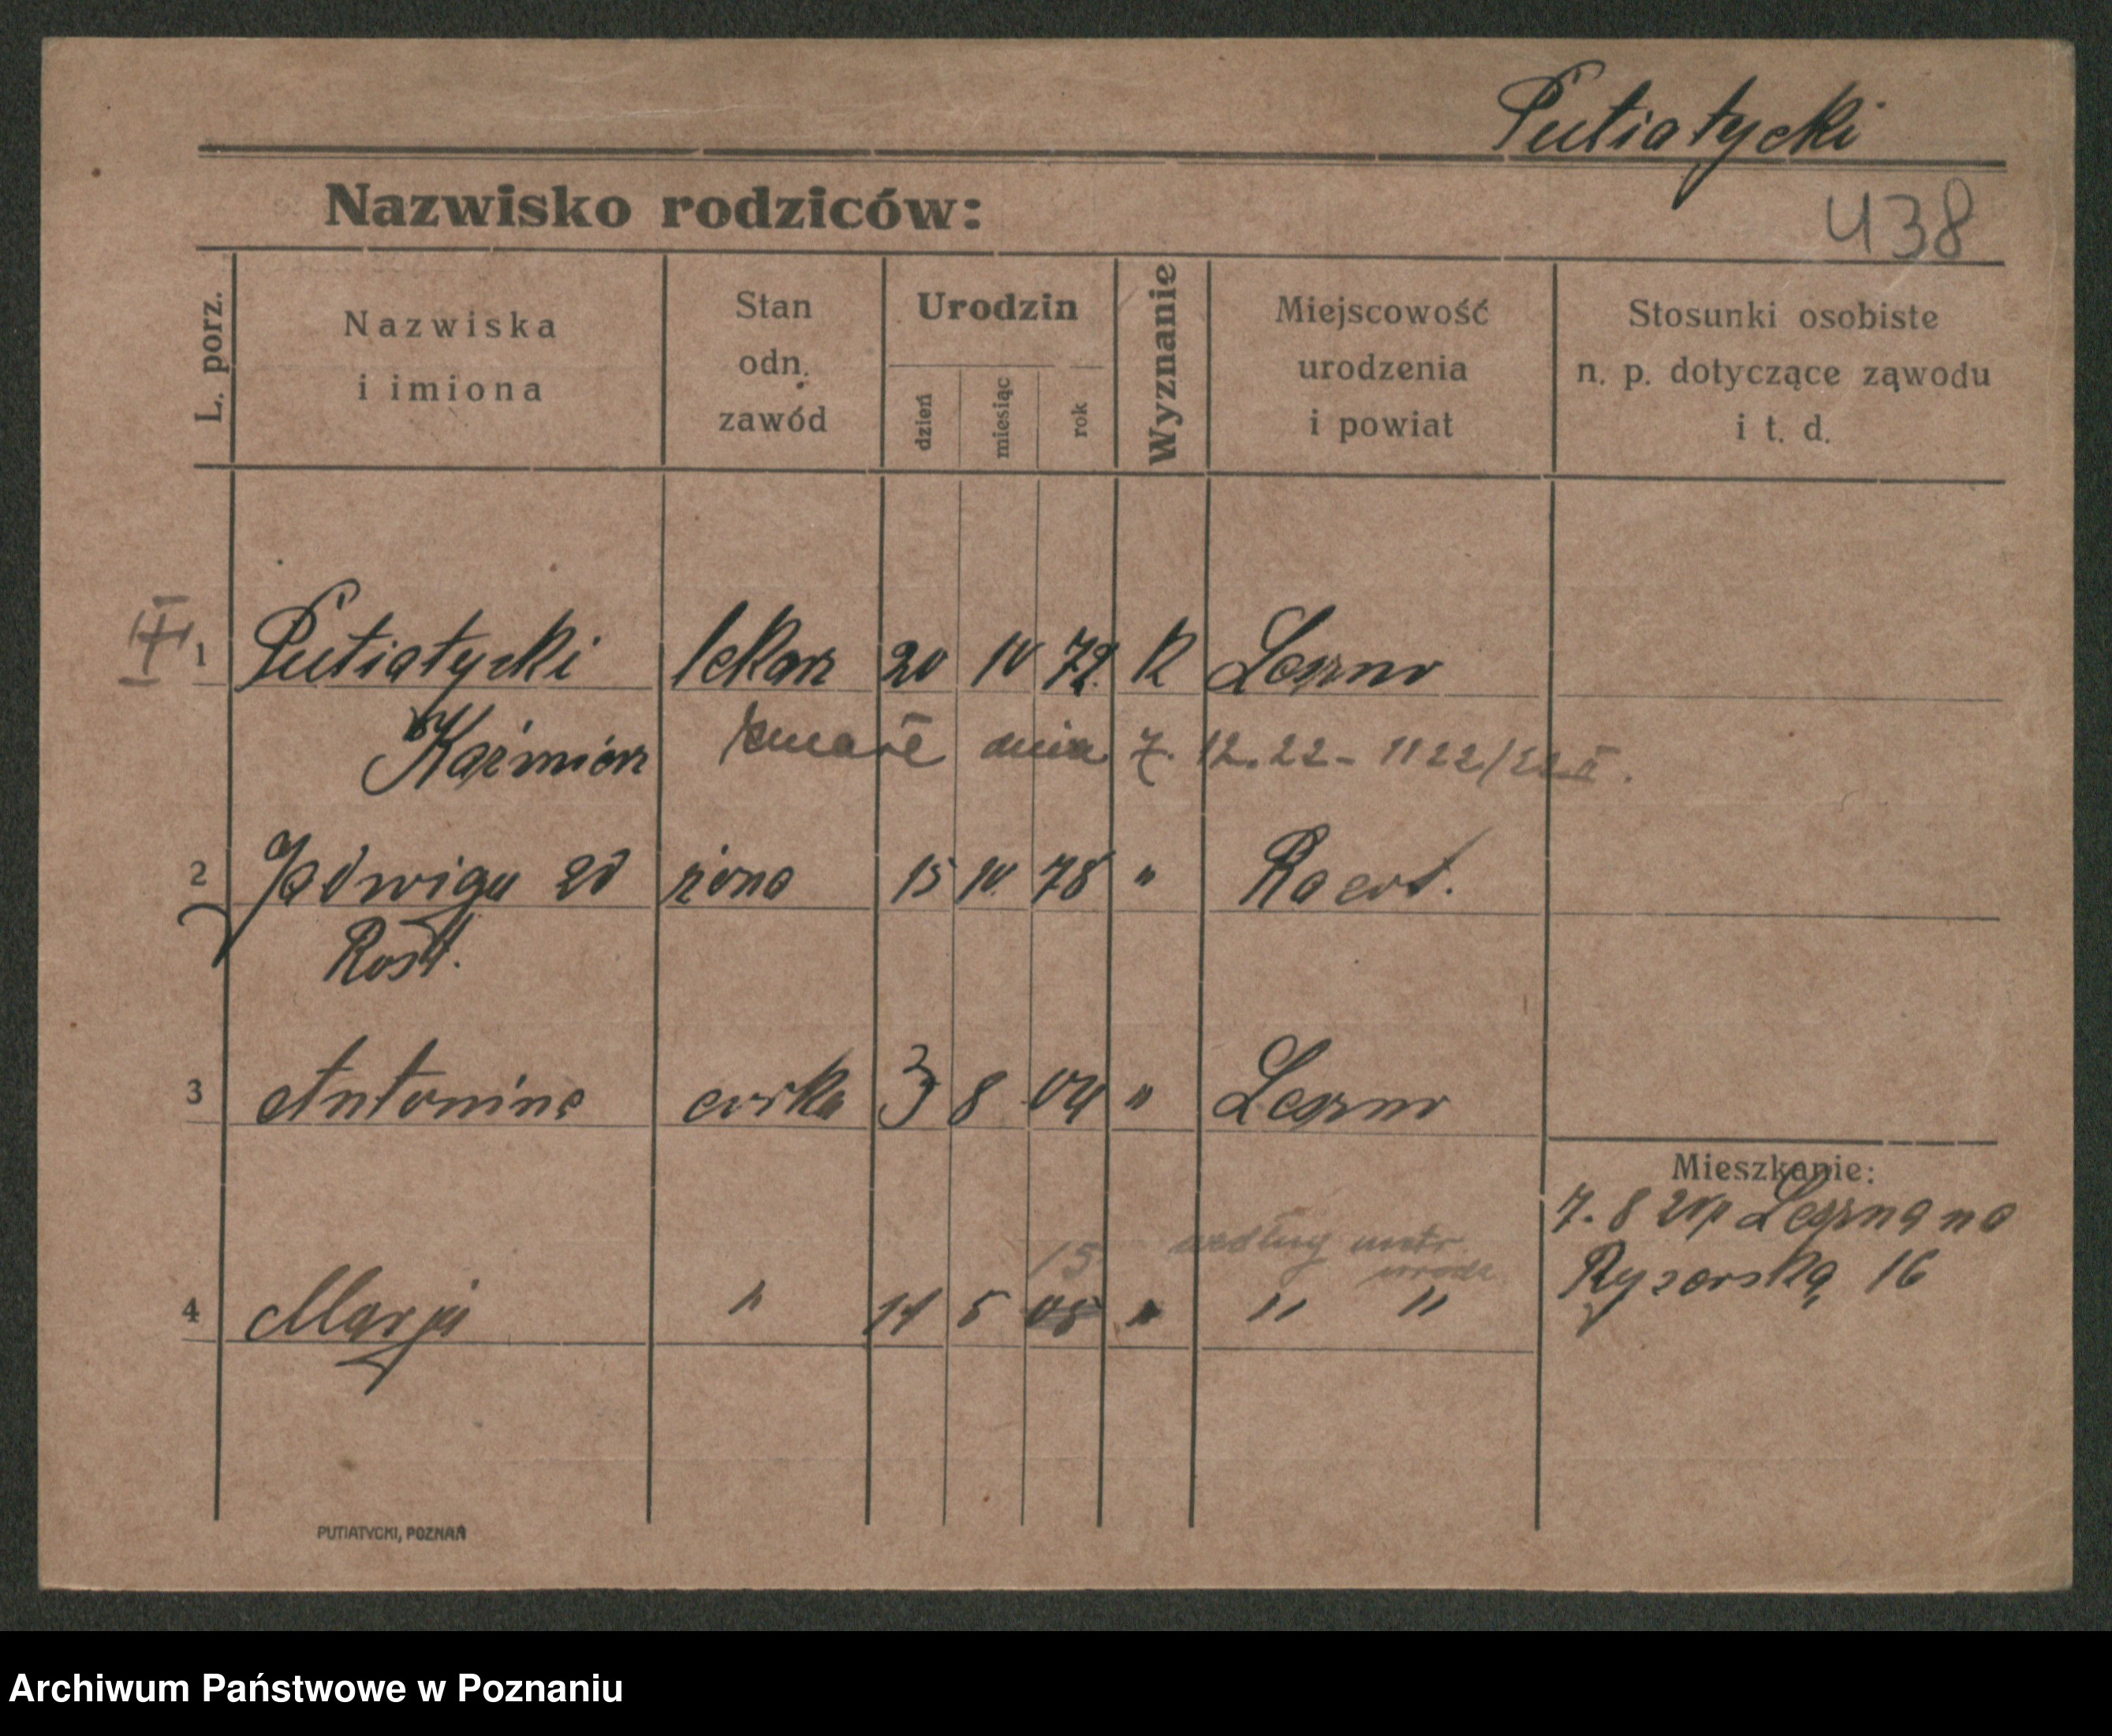 Putiatycki
Nazwisko rodziców:
438
L. porz.
Nazwiska
i imiona
Stan
odn.
zawód
Urodzin
dzień
miesiąc
rok
Wyznanie
Miejscowość
urodzenia
i powiat
Stosunki osobiste
n. p. dotyczące ząwodu
i t. d.
1 Putiatycki lekarz 20 10 72 K Leszno
Kaźmierz zmarł dnia 7. 12. 22 - 1122/22
2 Jadwiga zd żona 15 10 78 "
Rost.
3 Antonina córka 3 8 04 " Leszno
Mieszkanie:
7. 8 Leszna na
według metr. 15
urodz.
4 Marja " 14 5 05 " " "
16
PUTIATYCKI, POZNAŃ
Archiwum Państwowe w Poznaniu